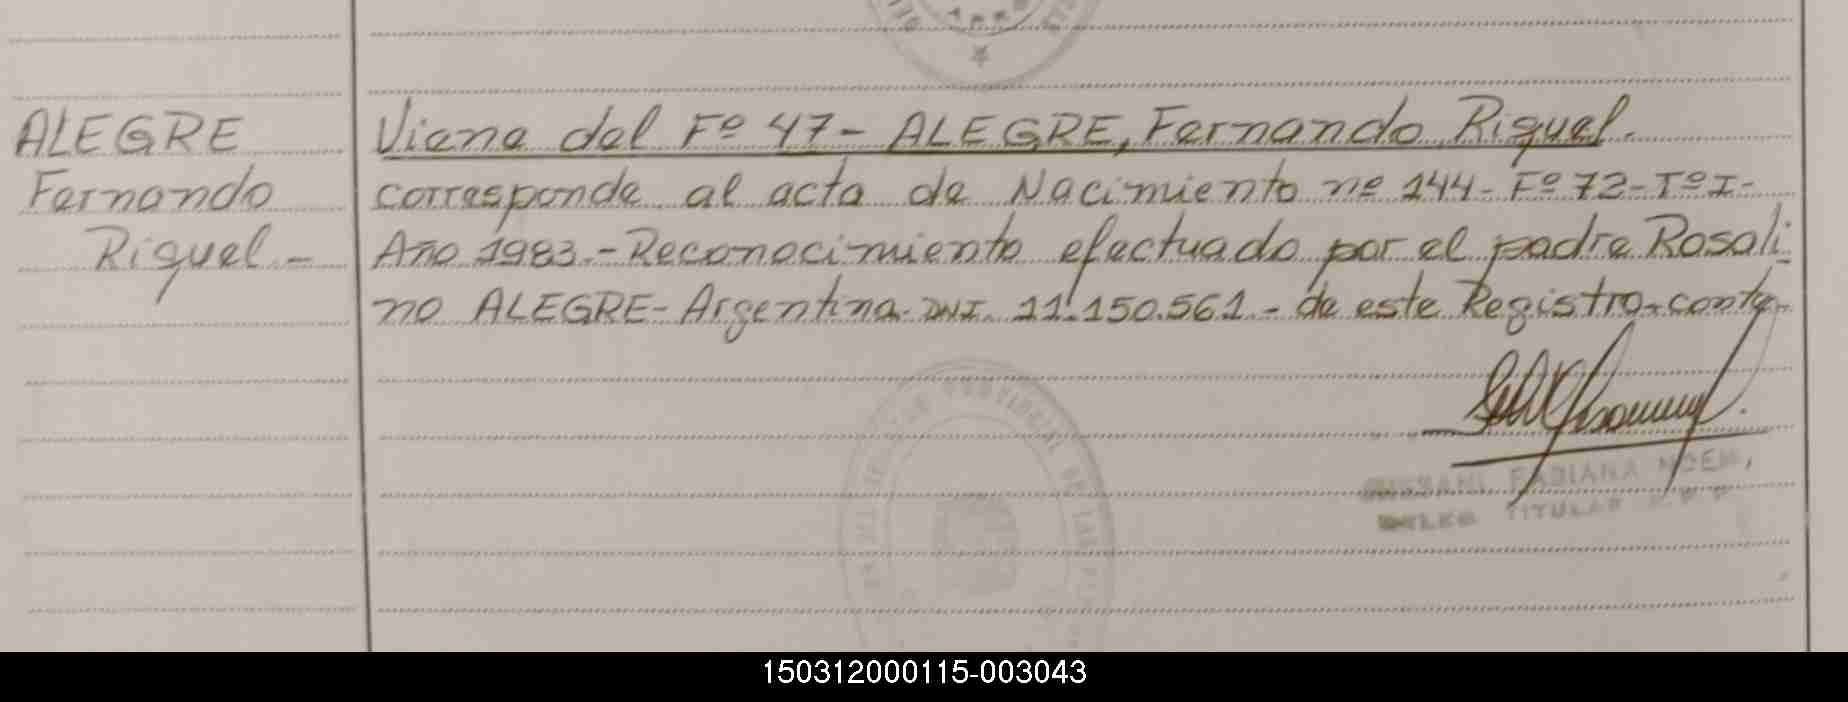 ALEGRE
Fernando
Riquel -
Viene del Fº 47 - ALEGRE, Fernando Riquel.
corresponde al acta de Nacimiento nº 144 - Fº 72 - Tº I -
Año 1983. - Reconocimiento efectuado por el padre Rosali-
no ALEGRE - Argentina - DNI. 11.150.561 - de este Registro - conste -
FABIANA NOEMI
TITULAR
150312000115-003043